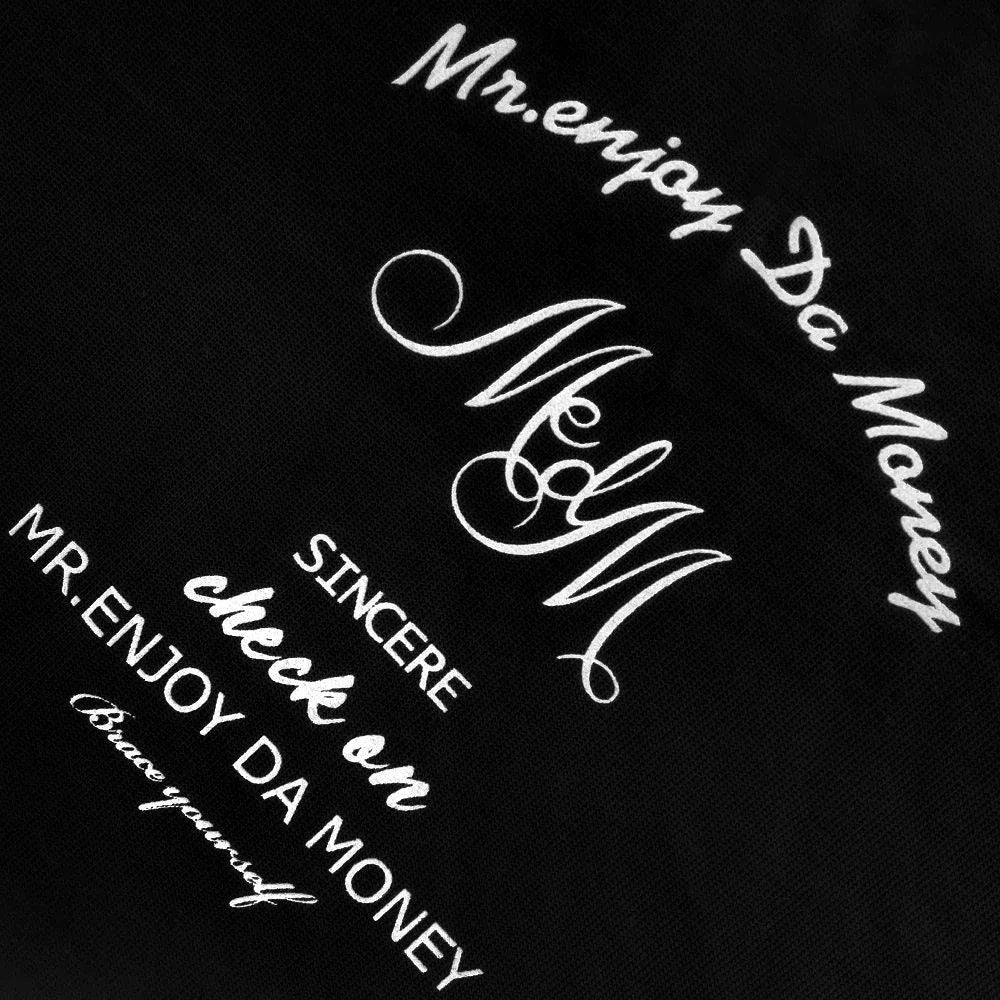 Mr.enjoy Da Money
MedM
SINCERE
check on
MR.ENJOY DA MONEY
Brace yourself